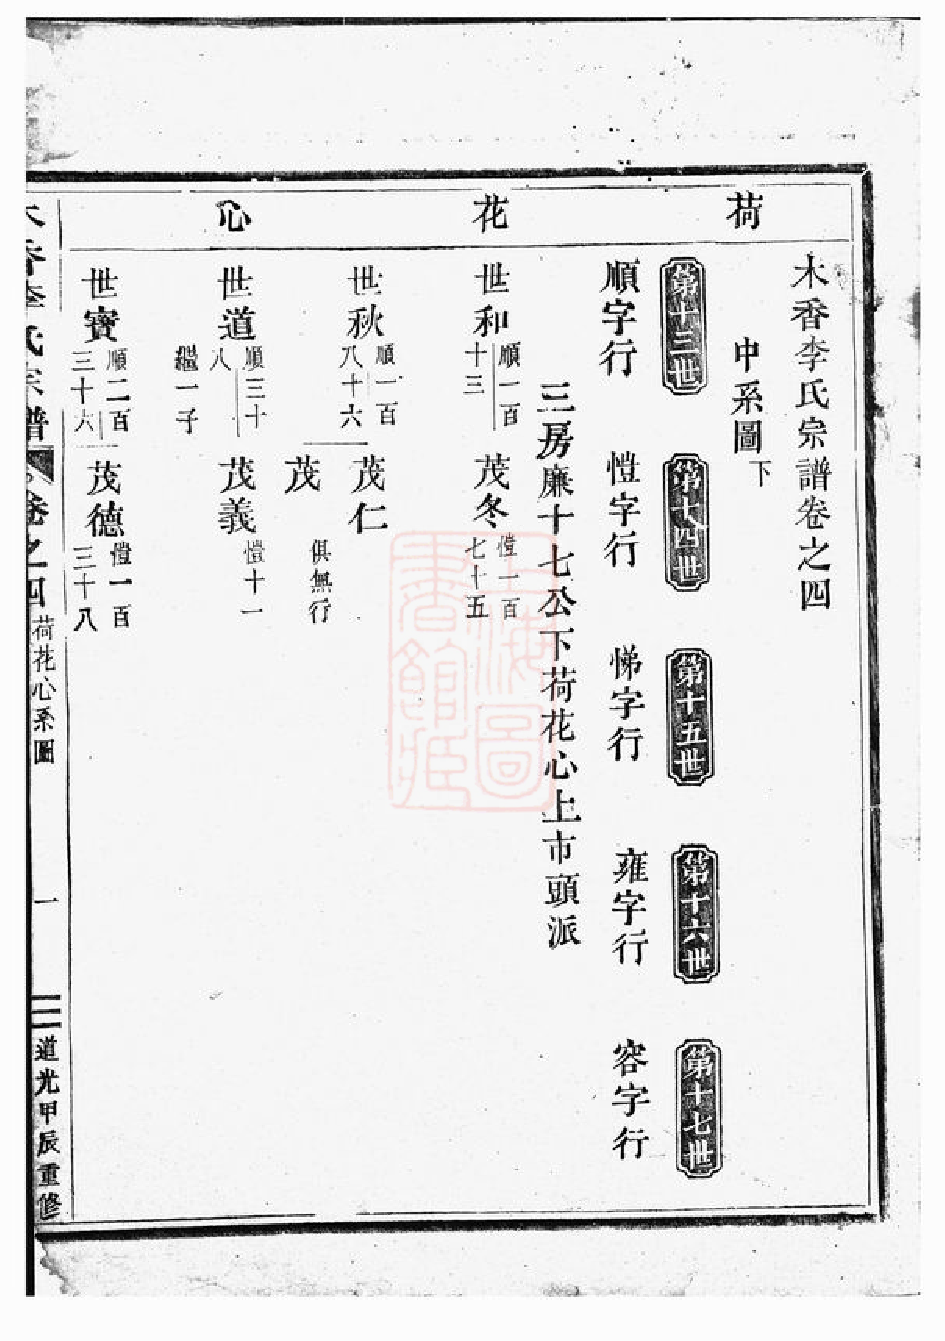 荷花心
木香李氏宗譜卷之四
中系圖下
第十三世 第十四世 第十五世 第十六世 第十七世
順字行 愷字行 悌字行 雍字行 容字行
三房廉十七公下荷花心上市頭派
世和 順一百十三 茂冬 愷一百七十五
世秋 順一百八十六 茂仁
茂 俱無行
世道 順三十八 茂義 愷十一
繼一子
世寶 順二百三十六 茂德 愷一百三十八
木香李氏宗譜 卷之四 荷花心系圖 一 道光甲辰重修
上海圖書館藏